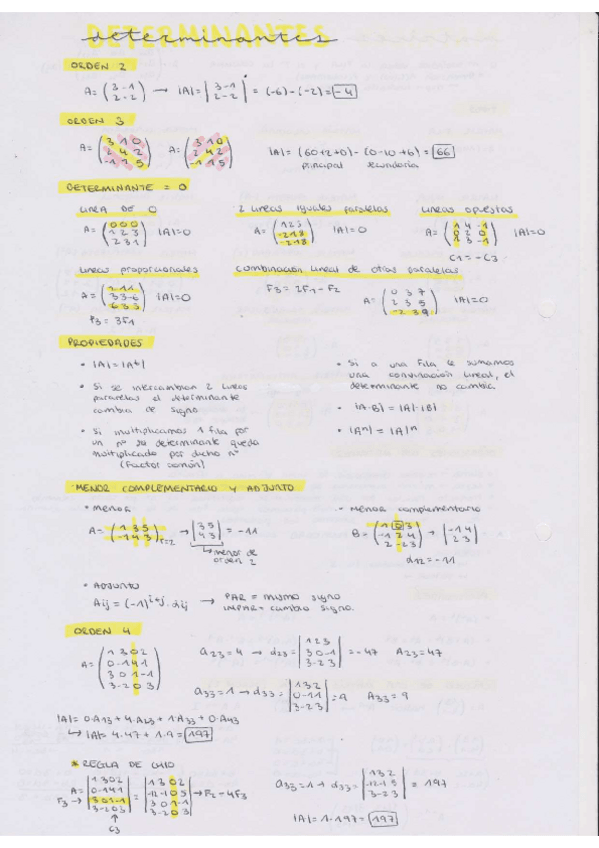 DETERMINANTES
determinantes
ORDEN 2
A= (3 -1 / 2 -2) → |A|= |3 -1 / 2 -2| = (-6)-(-2)= -4
ORDEN 3
A= (3 1 0 / 2 4 2 / -1 1 5) A= (3 1 0 / 2 4 2 / -1 1 5) |A|= (60+2+0)-(0-10+6)= 66
principal secundaria
DETERMINANTE = 0
LINEA DE 0 2 lineas iguales paralelas lineas opuestas
A= (0 0 0 / 1 2 3 / 2 3 1) |A|=0 A= (1 2 3 / -2 1 8 / -2 1 8) |A|=0 A= (1 4 -1 / 0 2 0 / 1 3 -1) |A|=0
C1=-C3
lineas proporcionales combinación lineal de otras paralelas
A= (2 1 1 / 3 3 -6 / 6 3 3) |A|=0 F3= 2F1-F2 A= (0 3 7 / 2 3 5 / -2 3 9) |A|=0
F3= 3F1
PROPIEDADES
• |A|=|At|
• Si se intercambian 2 lineas
paralelas el determinante
cambia de signo
• Si multiplicamos 1 fila por
un nº su determinante queda
multiplicado por dicho nº
(Factor común)
• Si a una fila le sumamos
una convinación lineal, el
determinante no cambia
• |A·B|=|A|·|B|
• |An|=|A|n
MENOR COMPLEMENTARIO Y ADJUNTO
• MENOR • Menor complementario
A= (1 3 5 / -1 4 3) r=2 → |3 5 / 4 3| = -11 B= (1 0 3 / -1 2 4 / 2 -2 3) → |-1 4 / 2 3|
↳ menor de
orden 2
α12=-11
• ADJUNTO
Aij = (-1)i+j · αij → PAR = mismo signo
IMPAR= cambio signo.
ORDEN 4
A= (1 3 0 2 / 0 -1 4 1 / 3 0 1 -1 / 3 -2 0 3) a23=4 → α23= |1 2 3 / 3 0 -1 / 3 -2 3| =-47 A23=47
a33=1 → α33= |1 3 2 / 0 -1 1 / 3 -2 3| =9 A33=9
|A|= 0·A13+4·A23+1·A33+0·A43
↳ |A|= 4·47+1·9= 197
* REGLA DE CHIO
A= |1 3 0 2 / 0 -1 4 1 / 3 0 1 -1 / 3 -2 0 3| = |1 3 0 2 / -12 -1 0 5 / 3 0 1 -1 / 3 -2 0 3| → F2-4F3 a33=1 → α33= |1 3 2 / -12 -1 5 / 3 -2 3| = 197
F3→
↑
C3
|A|= 1·197= 197